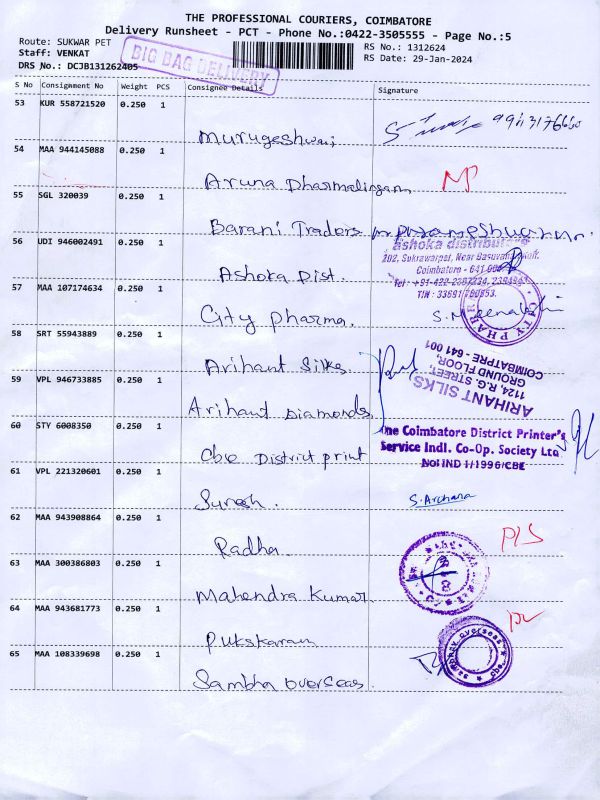 THE PROFESSIONAL COURIERS, COIMBATORE
Delivery Runsheet - PCT - Phone No.:0422-3505555 - Page No.:5
Route: SUKWAR PET
RS No.: 1312624
Staff: VENKAT
RS Date: 29-Jan-2024
DRS No.: DCJB131262405
BIG BAG DELIVERY
S No Consignment No Weight PCS Consignee Details Signature
53 KUR 558721520 0.250 1
Murugeshwari
54 MAA 944145088 0.250 1
Aruna Dharmalingam
55 SGL 320039 0.250 1
Barani Traders
56 UDI 946002491 0.250 1
Ashoka Dist.
Ashoka distributers
202, Sukrawarpet, Near Basuvanna Koil.
Coimbatore - 641 001
57 MAA 107174634 0.250 1
City pharma.
S. Meenakshi
58 SRT 55943889 0.250 1
Arihant Silks
ARIHANT SILKS
1124, R.G. STREET,
GROUND FLOOR,
COIMBATPRE - 641 001
59 VPL 946733885 0.250 1
Arihant Diamonds
60 STY 6008350 0.250 1
Cbe District print
The Coimbatore District Printer's
Service Indl. Co-Op. Society Ltd.
No: IND 1/1996/CBE
61 VPL 221320601 0.250 1
Suresh.
S. Archana
62 MAA 943908864 0.250 1
Radha
63 MAA 300386803 0.250 1
Mahendra Kumar
64 MAA 943681773 0.250 1
65 MAA 108339698 0.250 1
Sambha overseas.